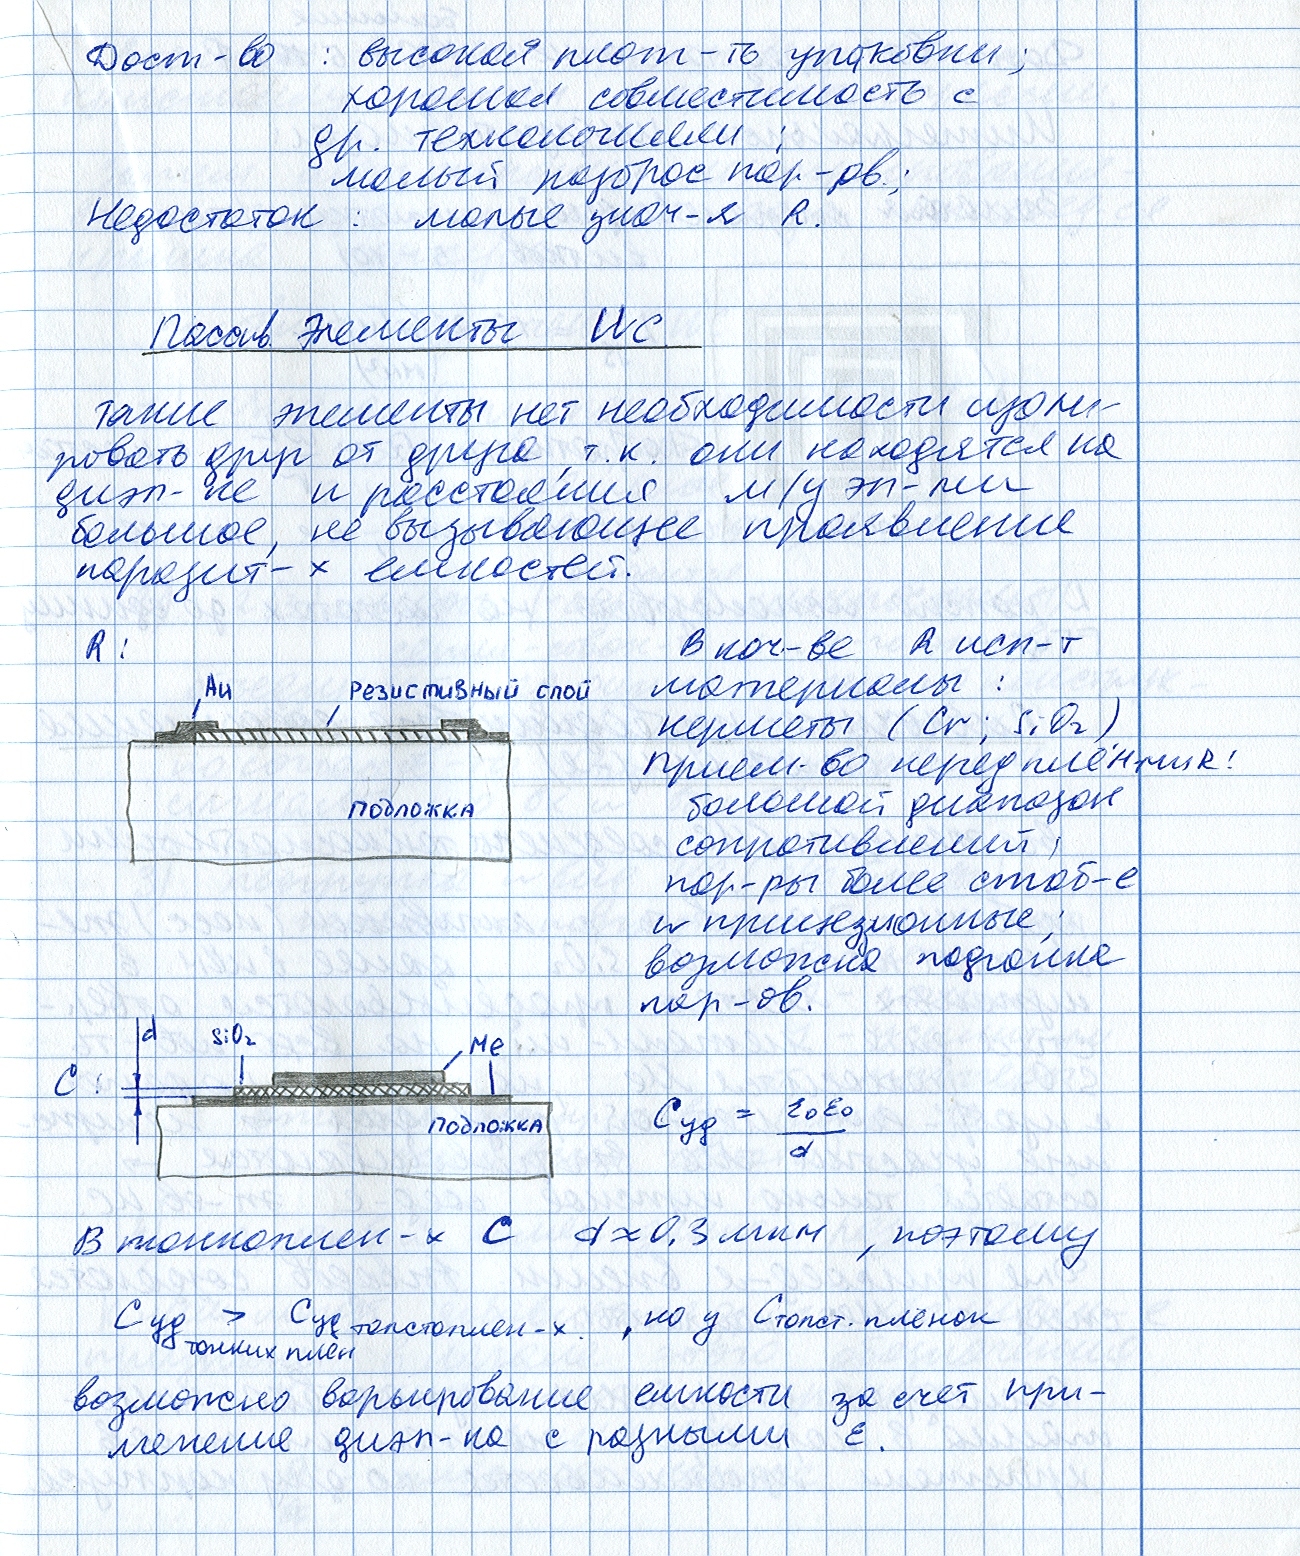 Дост-во : высокая плот-ть упаковки;
хорошая совместимость с
др. технологиями;
малый разброс пар-ов.;
Недостаток: малые знач-я R.
Пассив. Элементы ИС
Такие элементы нет необходимости изоли-
ровать друг от друга, т.к. они находятся на
диэл-ке и расстояния м/у эл-ми
большое, не вызывающее проявление
паразит-х емкостей.
R:
Au
Резистивный слой
Подложка
В кач-ве R исп-т
материалы:
керметы (Cr; SiO2)
Прием-во перед плён-ми R:
большой диапазон
сопротивлений;
пар-ры более стаб-е
и прицезионные;
возможна подгонка
пар-ов.
C:
d
SiO2
Me
Подложка
Cуд = ε0ε0/d
В тонкоплен-х C d≈0,3 мкм, поэтому
Cуд тонких плён > Cуд толстоплен-х., но у Cтолст. пленок
возможно варьирование емкости за счет при-
менение диэл-ка с разными ε.